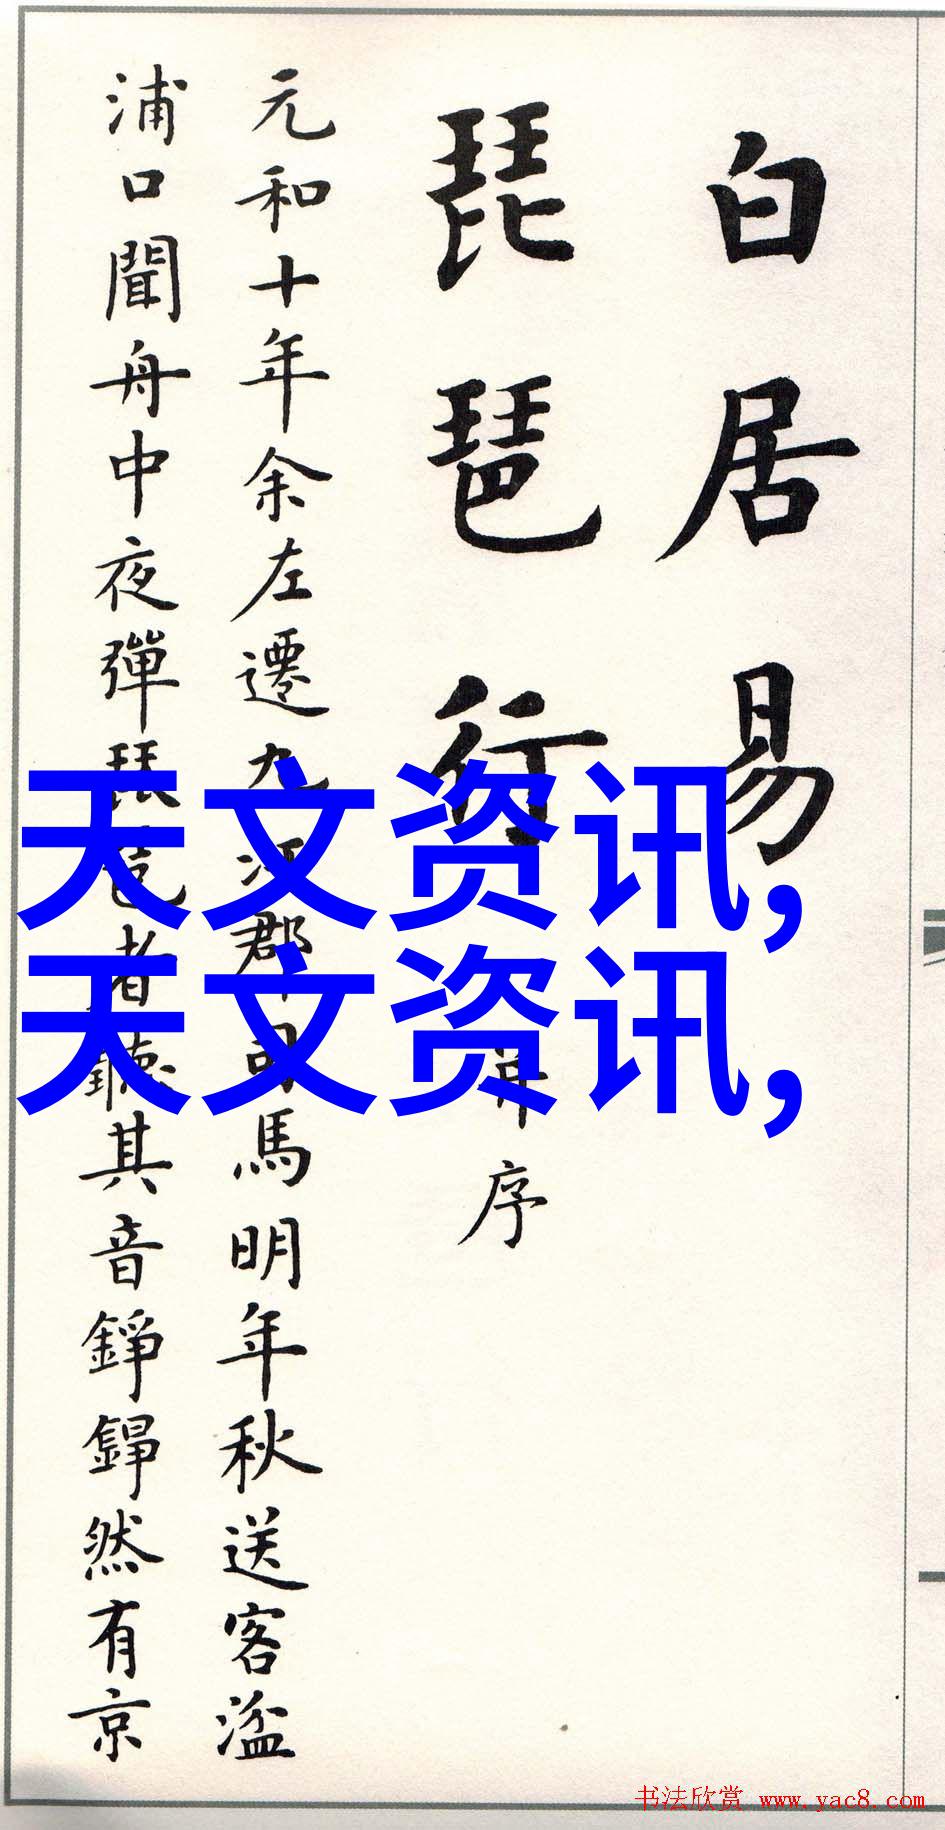 白居易
琵琶行 并序
元和十年余左遷九江郡司馬明年秋送客湓
浦口聞舟中夜彈琵琶者聽其音錚錚然有京
天文资讯,
天文资讯,
书法欣赏 www.yac8.com